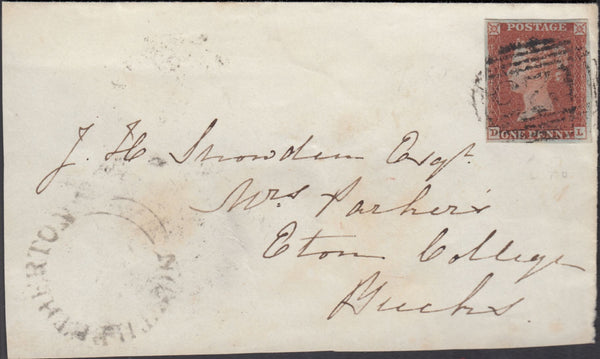 POSTAGE
D ONE PENNY L
J. H. Snowden Esqr.
Mrs Parker's
Eton College
Bucks
NORTH PETHERTON